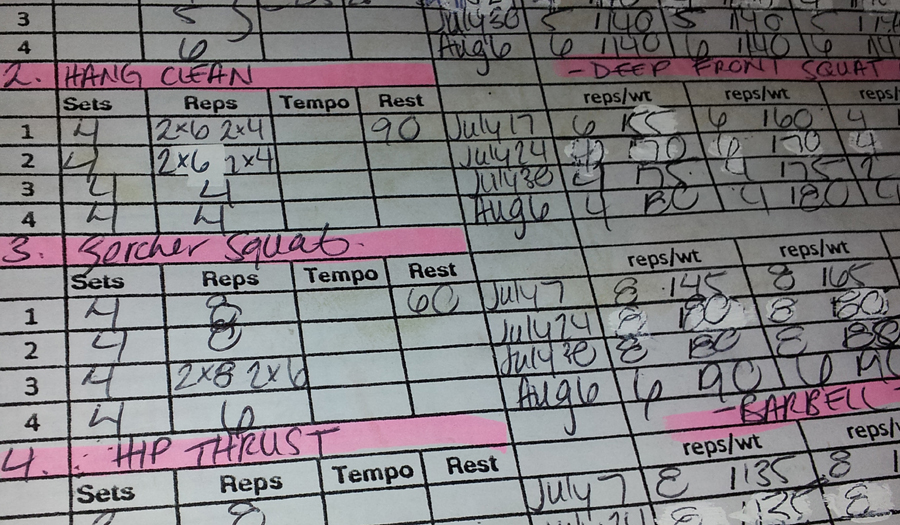 3 5 July 30 5 1140 5 1140 5
4 6 Aug 6 6 1140 6 1140 6
2. HANG CLEAN - DEEP FRONT SQUAT
Sets Reps Tempo Rest reps/wt reps/wt
1 4 2x6 2x4 90 July 17 6 155 6 160 4
2 4 2x6 2x4 July 24 170 170 4
3 4 4 July 30 4 175 4 175 2
4 4 4 Aug 6 4 180 4 180
3. Zorcher Squat
Sets Reps Tempo Rest reps/wt reps/wt
1 4 8 60 July 7 8 145 8 165
2 4 8 July 24 8 180 8 180
3 4 2x8 2x6 July 30 8 180 8 180
4 4 6 Aug 6 6 190 6
- BARBELL -
4. HIP THRUST
Sets Reps Tempo Rest reps/wt
8 July 7 8 1135 8
8 135 8